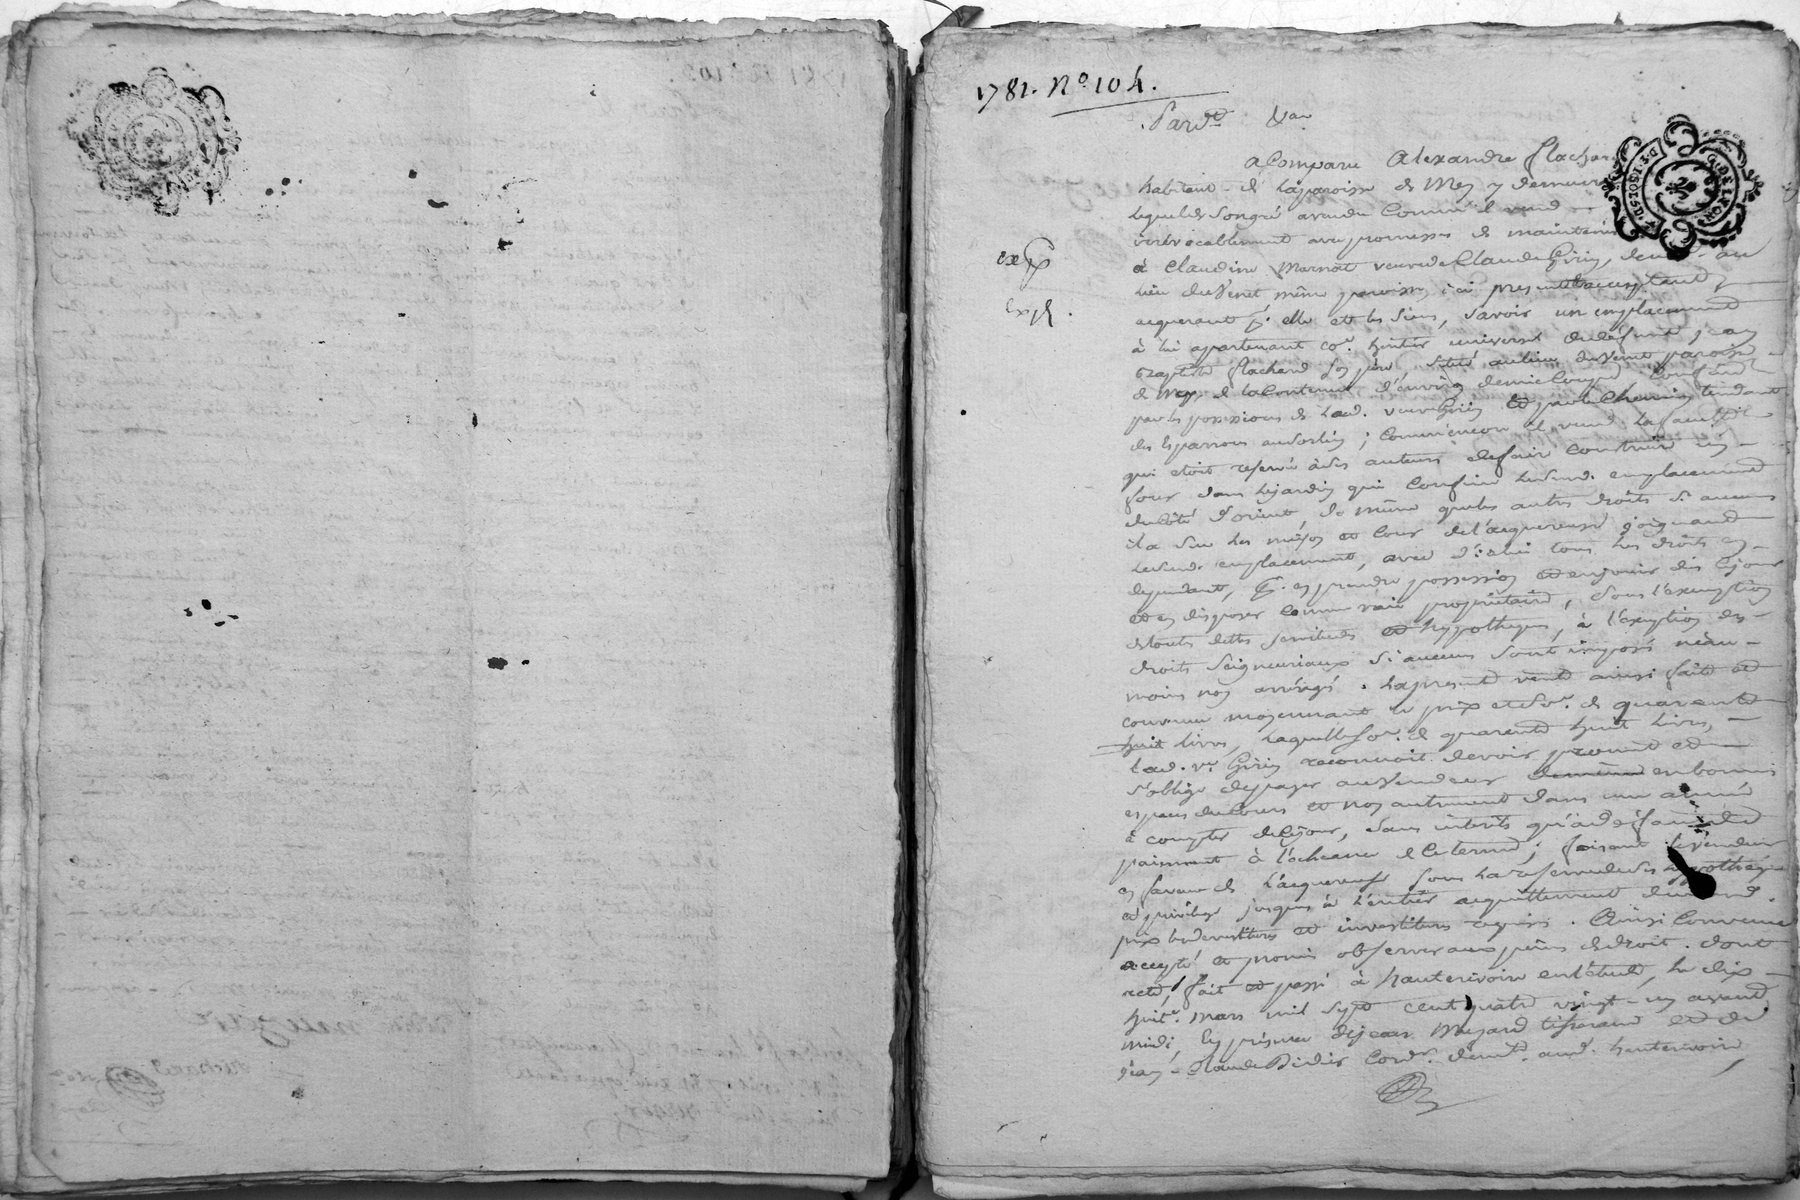 1781. N° 104.
Pard.t
a Comparu Alexandre flachar
habitant de la paroisse de Meys y demeurant
lequel de Son gré a vendu Comme il vend
irrévocablement avec promesse de maintenir
exp à Claudine Marnat veuve de Claude Girin, demt au
exp. lieu du Venet même paroisse, ici presente et acceptant
acquerant p. elle et les Siens, Savoir un emplacement
à lui apartenant co.e heritier universel du défunt jean
Baptiste flachard Son père, Situé au lieu du Venet paroisse
de Meys, de la Contenue d'environ demie Coupée Confiné
par les possessions de lad. veuve Girin et par le Chemin tendant
des Esparrons au ; Comm' encor il vend la faculté
qui etoit reservée à Ses auteurs de faire Construire un
four dans le jardin qui Confine led. emplacement
du côté d'orient, de même que les autres droits Si aucuns
il a Sur les maison et Cour de l'acquereuse joignant
led. emplacement, avec d'iceluy tous les droits en
dependant, p. en prendre possession et en jouir dès ce jour
et en disposer comme vraie proprietaire, Sous l'exemption
de toute dettes servitudes et hypotheques, à l'exception des
droits Seigneuriaux Si aucuns Sont imposés néan-
moins non arréragés. La presente vente ainsi faite et
convenue moyennant le prix et So.e de quarente
huit livres, laquelle So.e de quarente huit livres,
lad. v.e Girin reconnoit devoir promet et
S'oblige de payer au Vendeur en bonnes
especes du Cours et non autrement dans une année
à compter de Ce jour, Sans intérêts qu'à défaut de
paiement à l'echeance de Ce terme; faisant le vendeur
en faveur de l'acquereuse Sous la reserve de Ses hypotheque
et privilege jusques à l'entier acquittement dud.
prix les devestitures et investitures requises. Ainsi Convenu
accepté et promis observer aux peines de droit. Dont
acte, fait et passé à hauterivoire en l'étude, le dix
huit.e mars mil Sept cent quatre vingt-un avant
midi, En présence de jean Meyard tisserand et de
jean-Claude Didier Cord.r dem.t aud. hauterivoire,